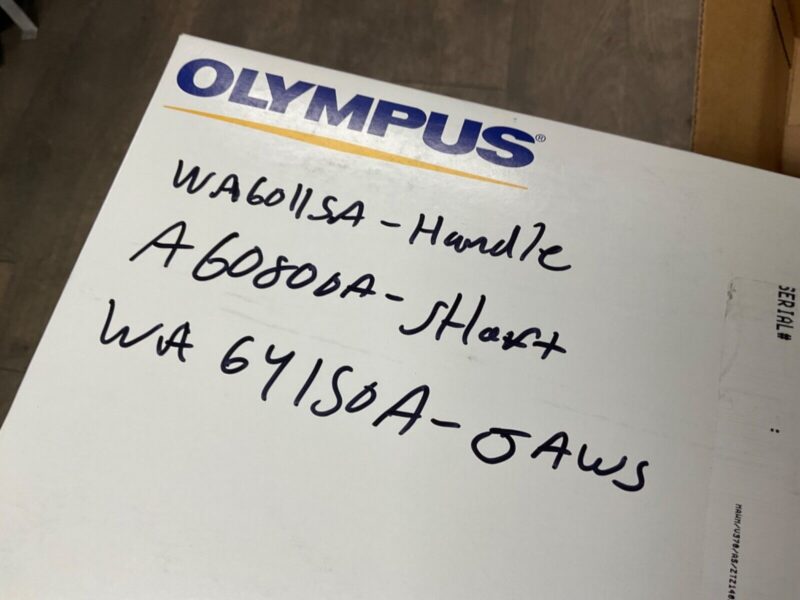 OLYMPUS®
WA6011SA - Handle
A60800A - SHaft
WA 64150A - JAWS
SERIAL#
: